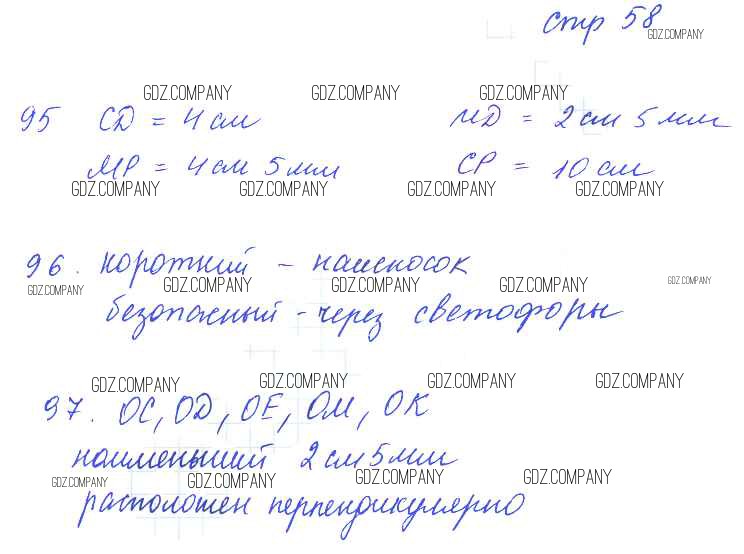 стр 58
GDZ.COMPANY
GDZ.COMPANY GDZ.COMPANY GDZ.COMPANY
95 CD = 4 см MD = 2 см 5 мм
MP = 4 см 5 мм CP = 10 см
GDZ.COMPANY GDZ.COMPANY GDZ.COMPANY GDZ.COMPANY
96. короткий - наискосок
GDZ.COMPANY GDZ.COMPANY GDZ.COMPANY GDZ.COMPANY GDZ.COMPANY
безопасный - через светофоры
GDZ.COMPANY GDZ.COMPANY GDZ.COMPANY GDZ.COMPANY
97. OC, OD, OE, OM, OK
наименьший 2 см 5 мм
GDZ.COMPANY GDZ.COMPANY GDZ.COMPANY GDZ.COMPANY
расположен перпендикулярно